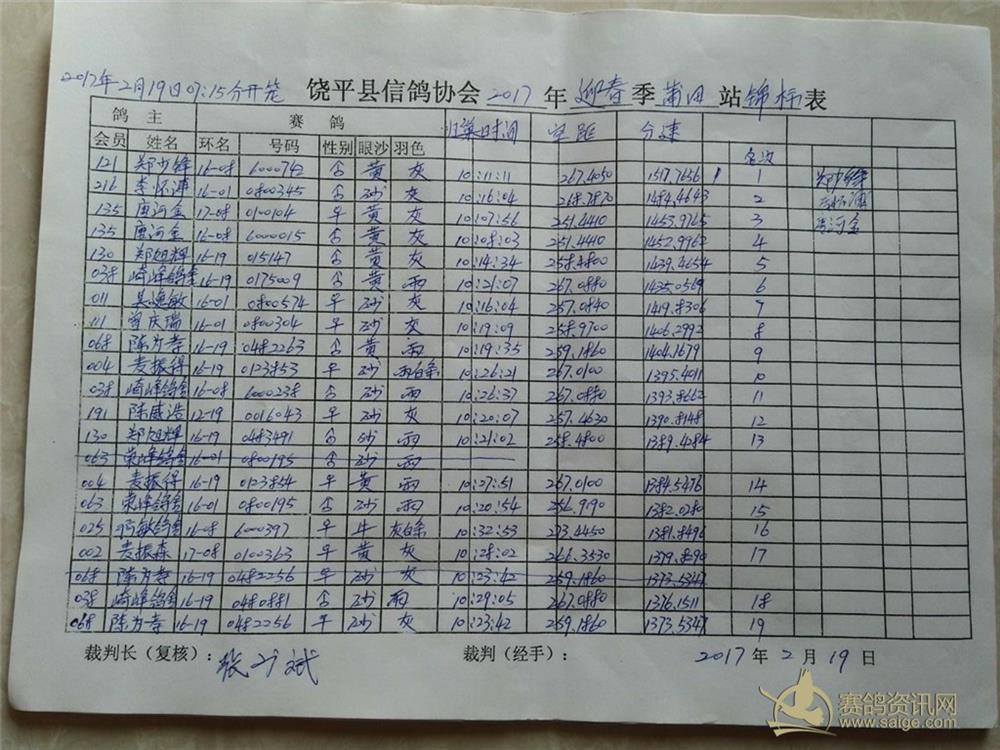 2017年2月19日07:15分开笼 饶平县信鸽协会2017年迎春季莆田站锦标表
鸽 主 赛 鸽 归巢时间 空距 分速
会员 姓名 环名 号码 性别 眼沙 羽色 名次
121 郑少锋 16-08 6000742 黄 灰 10:11:11 267.4050 1517.7656 1 郑少锋
216 李怀 16-01 0800345 砂 灰 10:16:04 268.7870 1484.4643 2
135 唐河金 17-08 0100104 黄 灰 10:07:56 251.4410 1453.9765 3 唐河金
135 唐河金 16-08 6000015 黄 灰 10:08:03 251.4410 1452.9962 4
130 郑旭辉 16-19 015147 黄 灰 10:14:34 258.4800 1439.4654 5
038 崎峰鸽舍 16-19 0175009 黄 雨 10:21:07 267.0880 1435.0569 6
011 吴逸敏 16-01 0800574 砂 灰 10:16:04 257.0840 1419.8306 7
111 曾庆瑞 16-01 0800304 砂 灰 10:19:09 258.9700 1406.2992 8
068 陈为孝 16-19 0482263 黄 雨 10:19:35 259.1860 1404.1679 9
004 麦振得 16-19 0123853 砂 雨白条 10:26:21 267.0100 1395.4011 10
038 崎峰鸽舍 16-08 6000238 砂 雨 10:26:37 267.0880 1393.8662 11
191 陈盛浩 12-19 0016043 砂 灰 10:20:07 257.4630 1390.8148 12
130 郑旭辉 16-19 0483491 砂 雨 10:21:02 258.4800 1389.4284 13
063 荣峰鸽舍 16-01 0800195 砂 雨
004 麦振得 16-19 0123854 黄 雨 10:27:51 267.0100 1384.5476 14
063 荣峰鸽舍 16-01 0800195 砂 雨 10:20:54 256.9190 1382.0280 15
025 敏鸽舍 16-08 6000397 牛 灰白条 10:32:53 273.4450 1381.8496 16
002 麦振森 17-08 0100363 黄 灰 10:28:02 266.3530 1379.8690 17
068 陈为孝 16-19 0482256 砂 灰 10:23:42 259.1860 1373.5347
038 崎峰鸽舍 16-19 0480881 砂 雨 10:29:05 267.0880 1376.1511 18
068 陈为孝 16-19 0482256 砂 灰 10:23:42 259.1860 1373.5347 19
裁判长（复核）： 张广斌 裁判（经手）： 2017年2月19日
赛鸽资讯网
www.saige.com